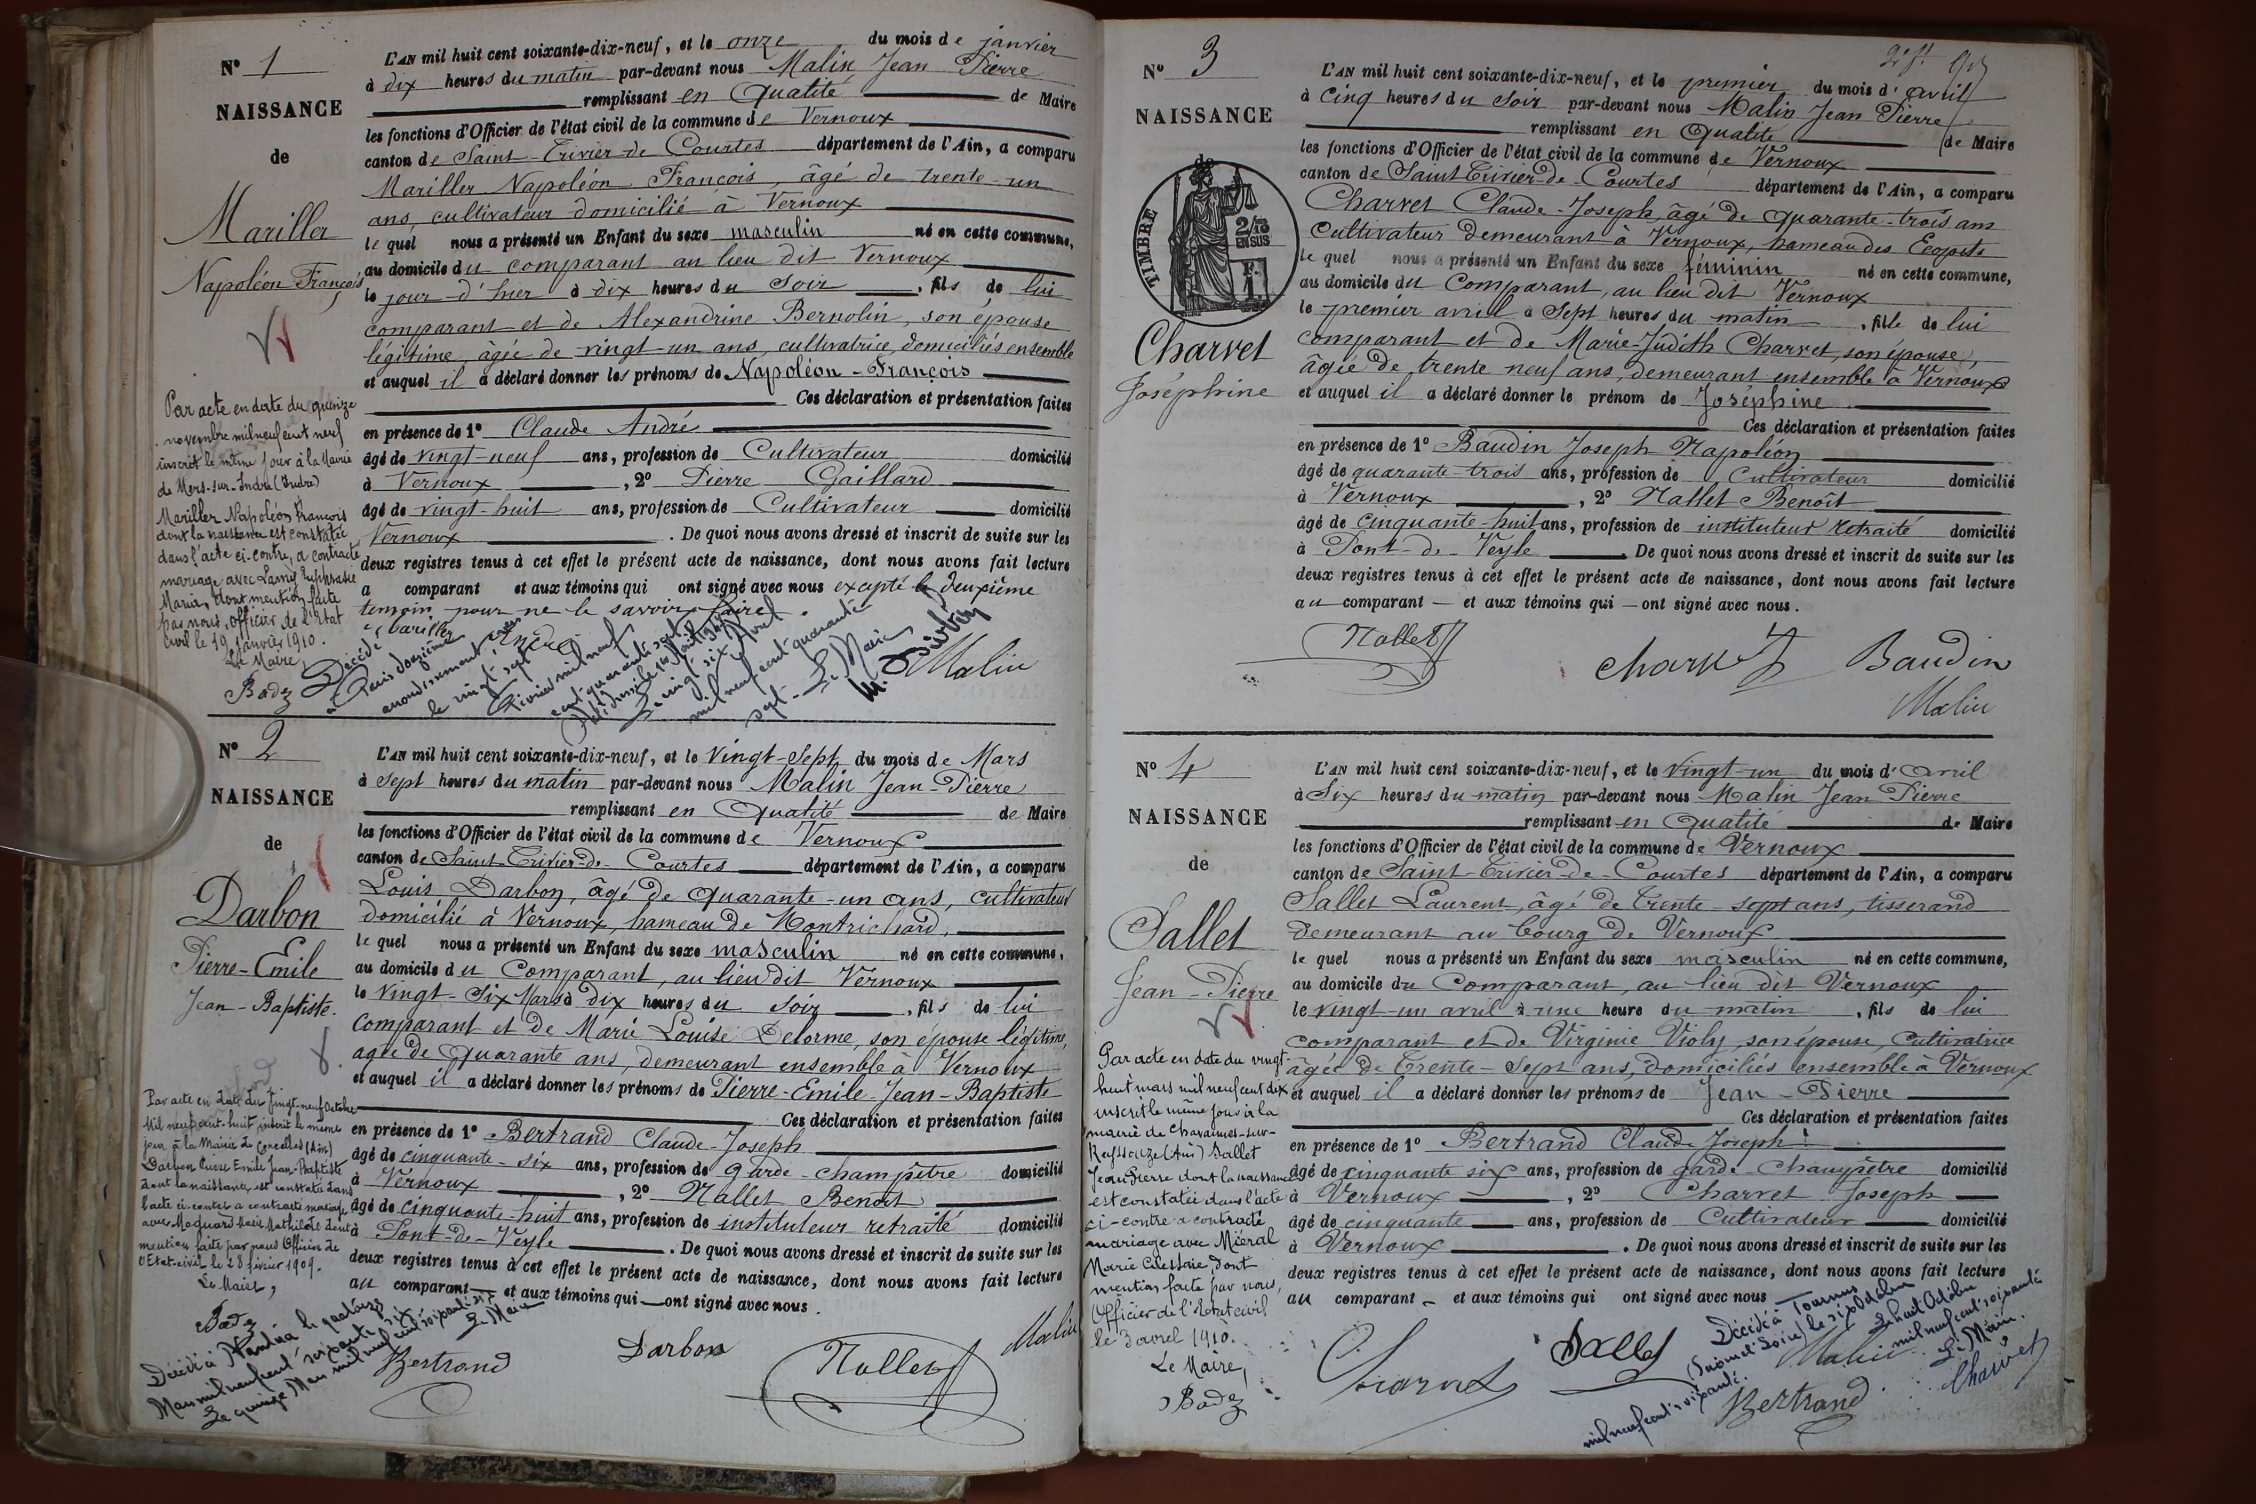 N° 1
NAISSANCE
de
Mariller
Napoléon François
L'AN mil huit cent soixante-dix-neuf, et le onze du mois de janvier
à dix heures du matin par-devant nous Malin Jean Pierre
remplissant en Qualité de Maire
les fonctions d'Officier de l'état civil de la commune de Vernoux
canton de Saint-Trivier-de Courtes département de l'Ain, a comparu
Mariller Napoléon François, âgé de trente-un
ans, cultivateur domicilié à Vernoux
le quel nous a présenté un Enfant du sexe masculin né en cette commune,
au domicile du comparant au lieu dit Vernoux
le jour d'hier à dix heures du soir, fils de lui
comparant et de Alexandrine Bernolin, son épouse
légitime, âgée de vingt-un ans, cultivatrice, domiciliés ensemble
et auquel il a déclaré donner les prénoms de Napoléon-François
Ces déclaration et présentation faites
en présence de 1° Claude André
âgé de vingt-neuf ans, profession de Cultivateur domicilié
à Vernoux, 2° Pierre Gaillard
âgé de vingt-huit ans, profession de Cultivateur domicilié
Vernoux. De quoi nous avons dressé et inscrit de suite sur les
deux registres tenus à cet effet le présent acte de naissance, dont nous avons fait lecture
a comparant et aux témoins qui ont signé avec nous excepté le deuxième
temoin pour ne le savoir faire.
Mariller André Malin
Par acte en date du quinze
novembre mil neuf cent neuf
inscrit le même jour à la Mairie
de Mers-sur-Indre (Indre)
Mariller Napoléon François
dont la naissance est constatée
dans l'acte ci-contre, a contracté
mariage avec Lamy Euphrasie
Maria, dont mention faite
par nous, Officier de l'Etat
Civil le 19 janvier 1910.
Le Maire,
Badez
Décédé
à Paris douzième
arrondissement
le vingt-sept
Février mil neuf
cent quarante sept
Le vingt six Avril
mil neuf cent quarante
sept - Le Maire
N° 2
NAISSANCE
de
Darbon
Pierre-Emile
Jean-Baptiste.
L'AN mil huit cent soixante-dix-neuf, et le vingt-sept du mois de Mars
à sept heures du matin par-devant nous Malin Jean-Pierre
remplissant en Qualité de Maire
les fonctions d'Officier de l'état civil de la commune de Vernoux
canton de Saint-Trivier-de-Courtes département de l'Ain, a comparu
Louis Darbon, âgé de quarante-un ans, cultivateur
domicilié à Vernoux, hameau de Montrichard,
le quel nous a présenté un Enfant du sexe masculin né en cette commune,
au domicile du Comparant, au lieu dit Vernoux
le vingt-six Mars à dix heures du soir, fils de lui
comparant et de Marie Louise Delorme, son épouse légitime,
agée de quarante ans, demeurant ensemble à Vernoux
et auquel il a déclaré donner les prénoms de Pierre-Emile-Jean-Baptiste
Ces déclaration et présentation faites
en présence de 1° Bertrand Claude-Joseph
âgé de cinquante-six ans, profession de garde-champêtre domicilié
à Vernoux, 2° Nallet Benoit
âgé de cinquante-huit ans, profession de instituteur retraité domicilié
à Pont-de-Veyle. De quoi nous avons dressé et inscrit de suite sur les
deux registres tenus à cet effet le présent acte de naissance, dont nous avons fait lecture
au comparant et aux témoins qui ont signé avec nous.
Bertrand Darbon Nallet Malin
Par acte en date du vingt-neuf Octobre
Mil neuf cent-huit inscrit le même
jour à la Mairie de Corcelles (Ain)
Darbon Pierre Emile Jean-Baptiste
dont la naissance est constatée dans
l'acte ci-contre a contracté mariage
avec Moquard Marie Mathilde dont
mention faite par nous Officier de
l'Etat-civil le 28 février 1909.
Le Maire,
Badez
Décédé à Nantua le quatorze
Mars mil neuf cent soixante six
Le quinze Mars mil neuf cent soixante six
Le Maire
2e ft
N° 3
NAISSANCE
de
TIMBRE
2/10 EN SUS
Charvet
Joséphine
L'AN mil huit cent soixante-dix-neuf, et le premier du mois d'avril
à cinq heures du soir par-devant nous Malin Jean Pierre
remplissant en Qualité de Maire
les fonctions d'Officier de l'état civil de la commune de Vernoux
canton de Saint Trivier-de-Courtes département de l'Ain, a comparu
Charvet Claude-Joseph, âgé de quarante-trois ans
Cultivateur demeurant à Vernoux, hameau des Ecopets
le quel nous a présenté un Enfant du sexe féminin né en cette commune,
au domicile du Comparant, au lieu dit Vernoux
le premier avril à sept heures du matin, fille de lui
comparant et de Marie-Judith Charvet, son épouse,
âgée de trente neuf ans, demeurant ensemble à Vernoux
et auquel il a déclaré donner le prénom de Joséphine
Ces déclaration et présentation faites
en présence de 1° Baudin Joseph Napoléon
âgé de quarante-trois ans, profession de Cultivateur domicilié
à Vernoux, 2° Nallet Benoît
âgé de cinquante-huit ans, profession de instituteur retraité domicilié
à Pont-de-Veyle. De quoi nous avons dressé et inscrit de suite sur les
deux registres tenus à cet effet le présent acte de naissance, dont nous avons fait lecture
au comparant et aux témoins qui ont signé avec nous.
Nallet Charvet Baudin
Malin
N° 4
NAISSANCE
de
Sallet
Jean-Pierre
L'AN mil huit cent soixante-dix-neuf, et le vingt-un du mois d'avril
à six heures du matin par-devant nous Malin Jean Pierre
remplissant en Qualité de Maire
les fonctions d'Officier de l'état civil de la commune de Vernoux
canton de Saint-Trivier-de-Courtes département de l'Ain, a comparu
Sallet Laurent, âgé de trente-sept ans, tisserand
demeurant au bourg de Vernoux
le quel nous a présenté un Enfant du sexe masculin né en cette commune,
au domicile du Comparant, au lieu dit Vernoux
le vingt-un avril à une heure du matin, fils de lui
comparant et de Virginie Violy, son épouse, cultivatrice
âgée de trente-sept ans, domiciliés ensemble à Vernoux
et auquel il a déclaré donner les prénoms de Jean-Pierre
Ces déclaration et présentation faites
en présence de 1° Bertrand Claude Joseph
âgé de cinquante six ans, profession de garde-champêtre domicilié
à Vernoux, 2° Charvet Joseph
âgé de cinquante ans, profession de Cultivateur domicilié
à Vernoux. De quoi nous avons dressé et inscrit de suite sur les
deux registres tenus à cet effet le présent acte de naissance, dont nous avons fait lecture
au comparant et aux témoins qui ont signé avec nous
Charvet Sallet Malin
Bertrand
Par acte en date du vingt-
huit mars mil neuf cent dix
inscrit le même jour à la
mairie de Chavannes-sur-
Reyssouze (Ain) Sallet
Jean Pierre dont la naissance
est constatée dans l'acte
ci-contre a contracté
mariage avec Miéral
Marie Célestine, dont
mention faite par nous,
Officier de l'Etat civil
le 3 avril 1910.
Le Maire,
Badez
Décédé à Tournus
(Saône et Loire) le six Octobre
mil neuf cent soixante.
Le huit Octobre
mil neuf cent soixante
Le Maire.
Charvet